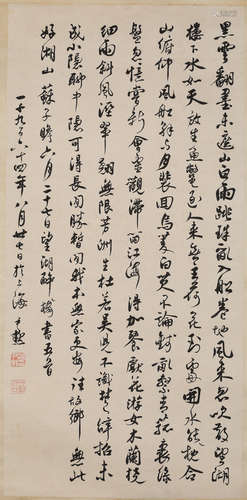 黑雲翻墨未遮山白雨跳珠亂入船卷地風來忽吹散望湖
樓下水如天放生魚鱉逐人來無主荷花到處開水枕能令
山俯仰風船解與月裴回烏菱白芡不論錢亂繫青菰裹綠
盤忽憶嘗新會靈觀滯留江海得加餐獻花遊女木蘭橈
細雨斜風溼翠翹無限芳洲生杜若吳兒不識楚辭招未
成小隱聊中隱可得長閒勝暫閒我本無家更安往故鄉無此
好湖山 蘇子瞻六月二十七日望湖醉樓書五首
一千九百六十四年八月廿七日於上海 尹默